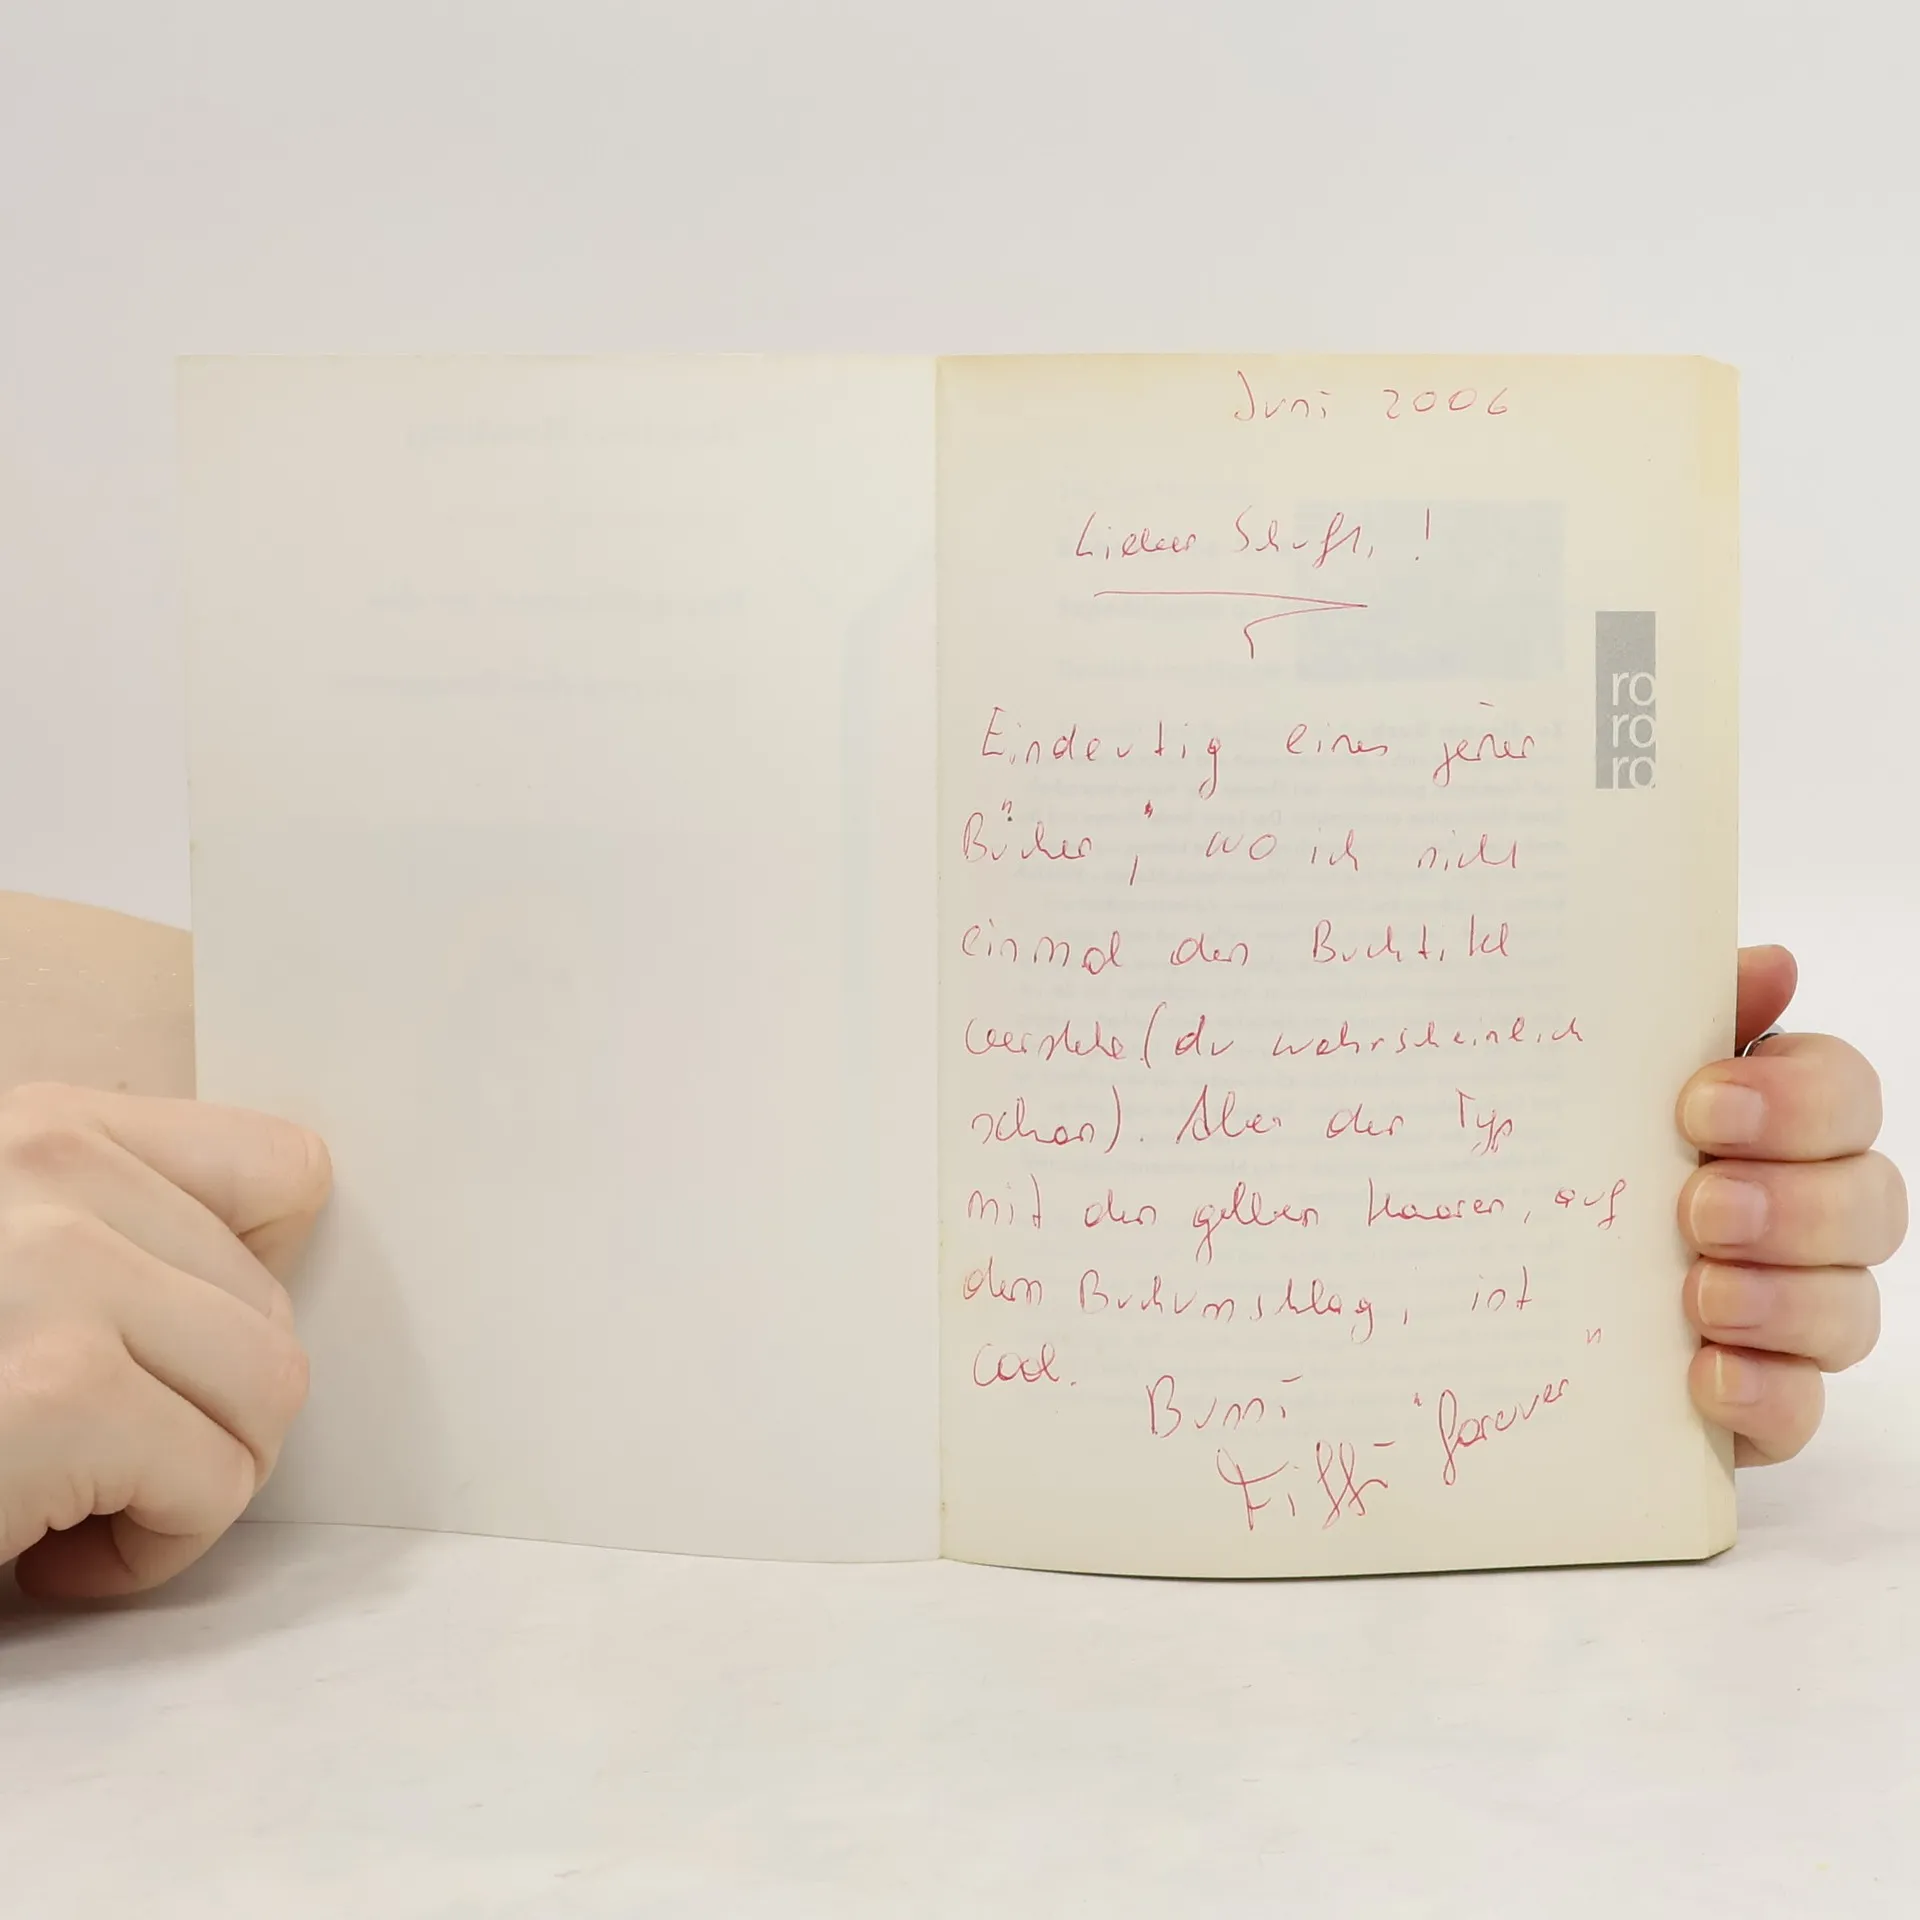 Juni 2006
Lieber Schuft, !
ro
ro
ro
Eindeutig eines jener
"Bücher", wo ich nicht
einmal den Buchtitel
verstehe (du wahrscheinlich
schon). Aber der Typ
mit den gelben Haaren, auf
dem Buchumschlag, ist
cool.
Bussi
"forever"